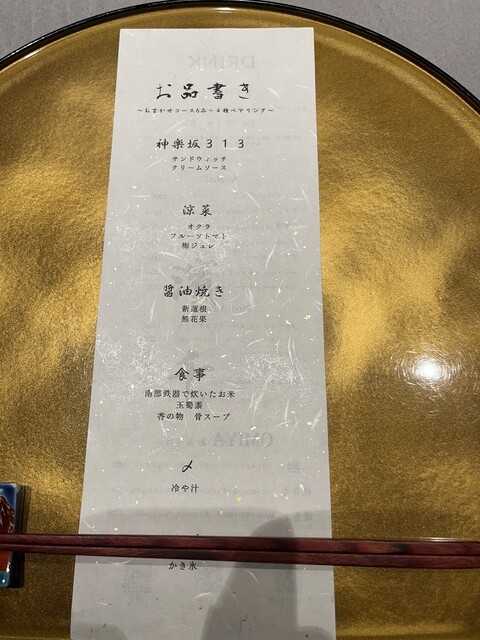 お品書き
～おまかせコース6品＋4種ペアリング～
神楽坂３１３
サンドウィッチ
クリームソース
涼菜
オクラ
フルーツトマト
梅ジュレ
醤油焼き
新蓮根
無花果
食事
南部鉄器で炊いたお米
玉蜀黍
香の物　骨スープ
〆
冷や汁
かき氷